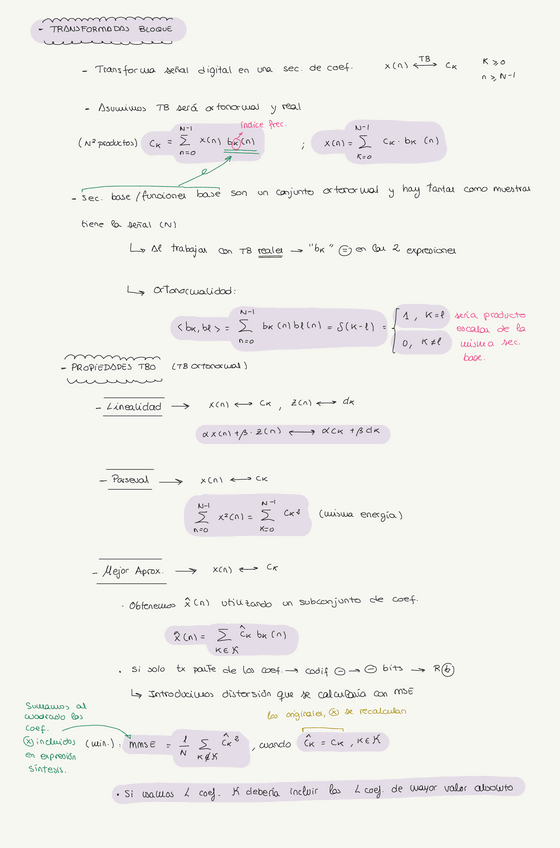 - TRANSFORMADAS BLOQUE
- Transforma señal digital en una sec. de coef. x(n) ⟷ᵀᴮ Cκ K ≥ 0
n ≥ N-1
- Asumimos TB será ortonormal y real
índice frec.
(N² productos) Cκ = Σ_{n=0}^{N-1} x(n) bκ(n) ; x(n) = Σ_{K=0}^{N-1} Cκ · bκ (n)
- Sec. base / funciones base son un conjunto ortonormal y hay tantas como muestras
tiene la señal (N)
↳ Al trabajar con TB reales → "bκ" ⊜ en las 2 expresiones
↳ Ortonormalidad:
< bκ, bl > = Σ_{n=0}^{N-1} bκ (n) bl (n) = δ(K-l) = { 1 , K=l
0, K≠l
sería producto
escalar de la
misma sec.
base.
- PROPIEDADES TBO (TB ortonormal)
- Linealidad → x(n) ⟷ Cκ , z(n) ⟷ dκ
αx(n) + β · z(n) ⟷ αCκ + βdκ
- Parseval → x(n) ⟷ Cκ
Σ_{n=0}^{N-1} x²(n) = Σ_{K=0}^{N-1} Cκ² (misma energía)
- Mejor Aprox. → x(n) ⟷ Cκ
· Obtenemos x̂(n) utilizando un subconjunto de coef.
x̂(n) = Σ_{K∈K} Ĉκ bκ (n)
· Si solo tx parte de los coef. → codif ⊖ → ⊖ bits → R ⓑ
↳ Introducimos distorsión que se calcularía con MSE
los originales, ⓧ se recalculan
Sumamos al
cuadrado los
coef.
ⓧ incluidos
en expresión
síntesis.
(min.) : mmse = 1/N Σ_{K∉K} Ĉκ² , cuando Ĉκ = Cκ , K∈K
· Si usamos L coef. K debería incluir los L coef. de mayor valor absoluto